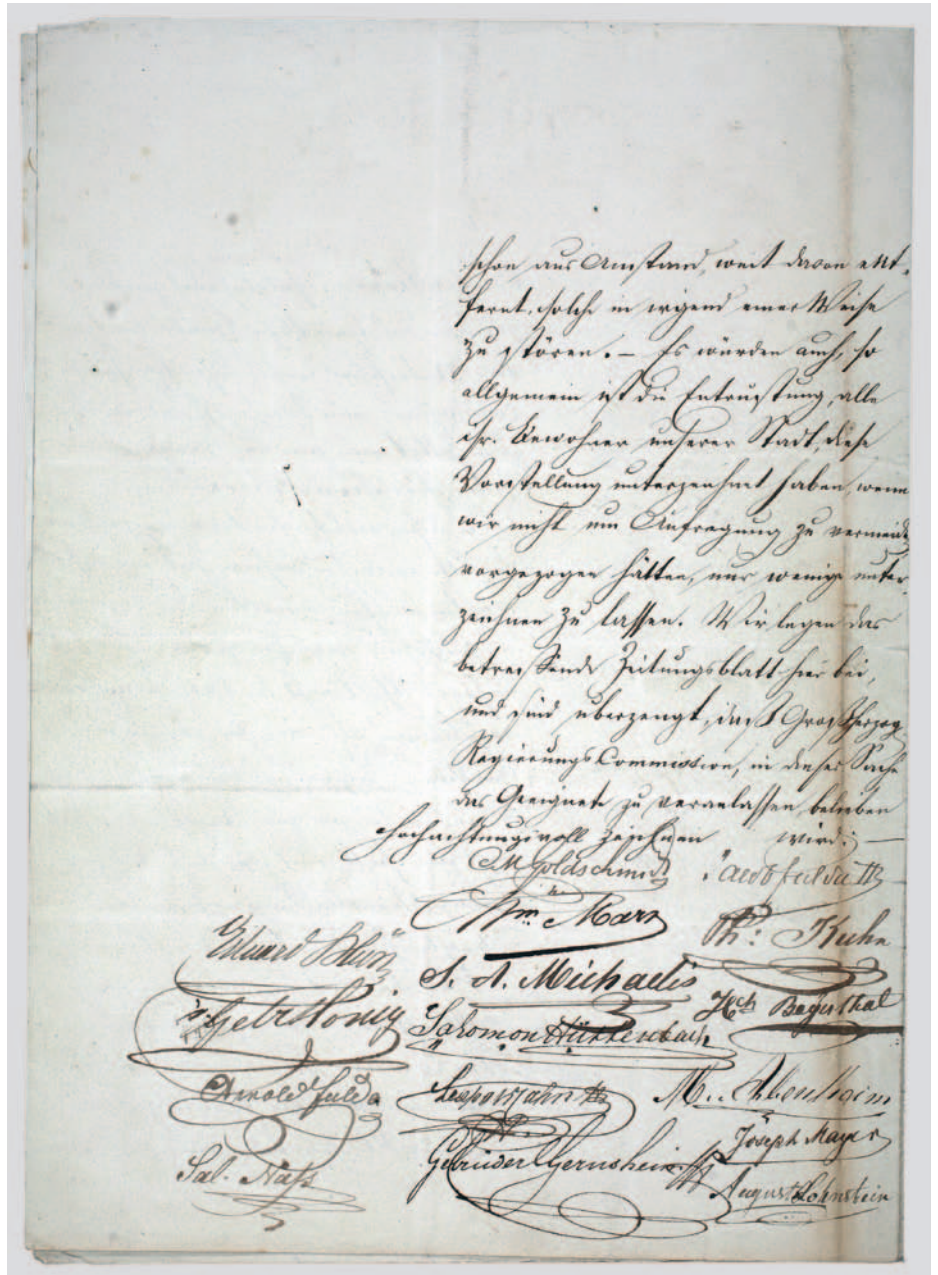 schon aus Anstand, weit davon ent-
fernt, solche in irgend einer Weise
zu stören. – Es würden auch, so
allgemein ist die Entrüstung, alle
isr. Bewohner unserer Stadt, diese
Vorstellung unterzeichnet haben, wenn
wir nicht um Aufregung zu vermeiden
vorgezogen hätten, nur wenige unter-
zeichnen zu lassen. Wir legen das
betreffende Zeitungsblatt hier bei,
und sind überzeugt, daß Großherzog
Regierungs Commission, in dieser Sache
das Geeignete zu veranlassen, belieben
hochachtungsvoll zeichnen wird; —
M Goldschmidt Jacob Fulda III
Wm. Marx
Eduard Th: Kuhn
S. A. Michaelis
Gebr Honig Hch Bayerthal
Salomon Hüttenbach
Arnold Fulda Leopold Jahn III M. Abenheim
Joseph Mayer
Sal. Naß Gebrüder Gernsheim
August Lohnstein